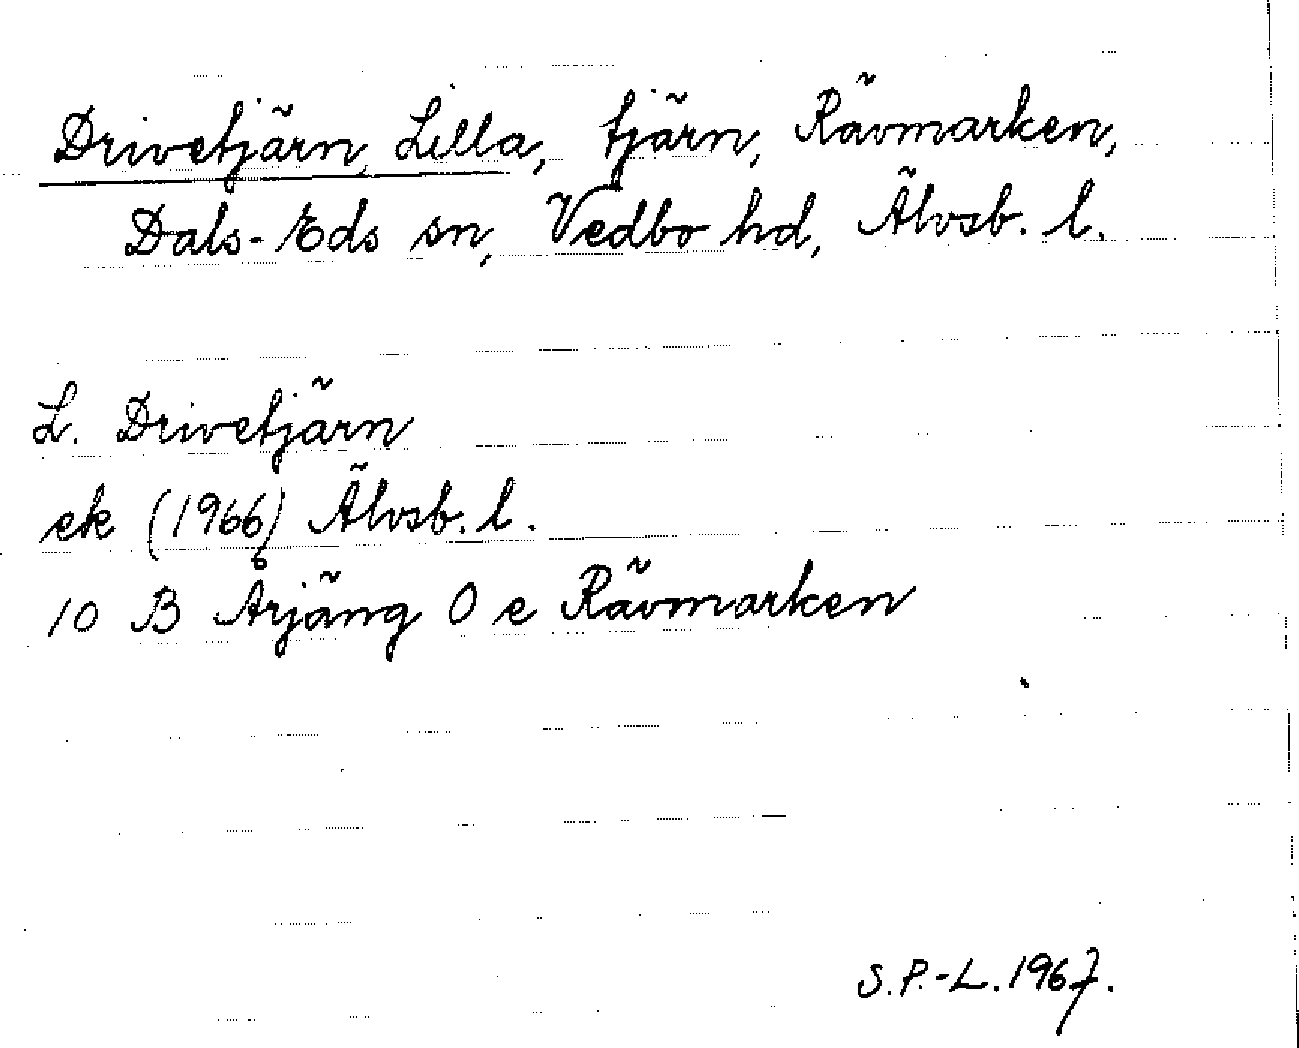 Drivetjärn, Lilla, tjärn, Rävmarken,
Dals-Eds sn, Vedbo hd, Älvsb. l.
L. Drivetjärn
ek (1966) Älvsb. l.
10 B Årjäng 0 e Rävmarken
S.P.-L. 1967.